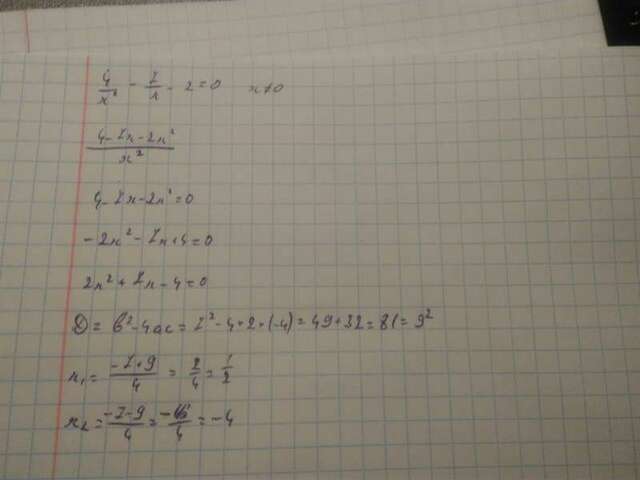 4/x² - 7/x - 2 = 0 x ≠ 0
(4 - 7x - 2x²)/x²
4 - 7x - 2x² = 0
- 2x² - 7x + 4 = 0
2x² + 7x - 4 = 0
D = b² - 4ac = 7² - 4 * 2 * (-4) = 49 + 32 = 81 = 9²
x₁ = (-7+9)/4 = 2/4 = 1/2
x₂ = (-7-9)/4 = -16/4 = -4